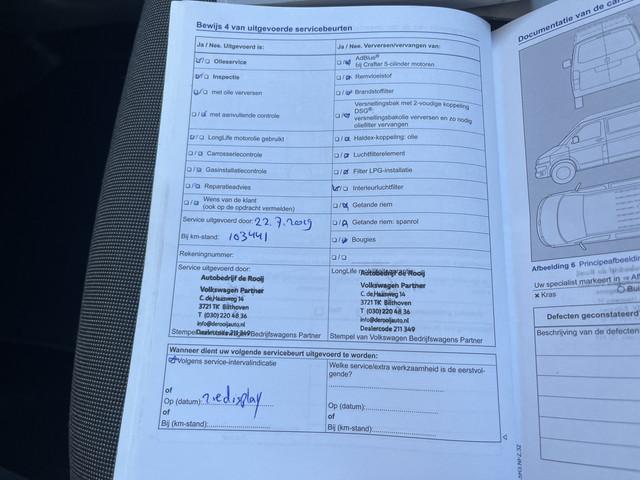 Bewijs 4 van uitgevoerde servicebeurten
Ja / Nee. Uitgevoerd is:
Olieservice
Inspectie
met olie verversen
met aanvullende controle
LongLife motorolie gebruikt
Carrosseriecontrole
Gasinstallatiecontrole
Reparatieadvies
Wens van de klant
(ook op de opdracht vermelden)
Service uitgevoerd door: 22.7.2019
Bij km-stand: 103441
Rekeningnummer:
Service uitgevoerd door:
Autobedrijf de Rooij
Volkswagen Partner
C. de Haasweg 14
3721 TK Bilthoven
T (030) 220 48 36
info@derooijauto.nl
Dealercode 211 349
Stempel van Volkswagen Bedrijfswagens Partner
Ja / Nee. Verversen/vervangen van:
AdBlue®
bij Crafter 5-cilinder motoren
Remvloeistof
Brandstoffilter
Versnellingsbak met 2-voudige koppeling
DSG®:
versnellingsbakolie verversen en zo nodig
oliefilter vervangen
Haldex-koppeling: olie
Luchtfilterelement
Filter LPG-installatie
Interieurluchtfilter
Getande riem
Getande riem: spanrol
Bougies
LongLife mobiliteitsgarantie
Autobedrijf de Rooij
Volkswagen Partner
C. de Haasweg 14
3721 TK Bilthoven
T (030) 220 48 36
info@derooijauto.nl
Dealercode 211 349
Stempel van Volkswagen Bedrijfswagens Partner
Wanneer dient uw volgende servicebeurt uitgevoerd te worden:
Volgens service-intervalindicatie
of
Op (datum): zie display
of
Bij (km-stand):
Welke service/extra werkzaamheid is de eerstvol-
gende?
Op (datum):
of
Bij (km-stand):
Documentatie van de
Afbeelding 6 Principeafbeelding
Uw specialist markeert in
x Kras
Defecten geconstateerd
Beschrijving van de defecten